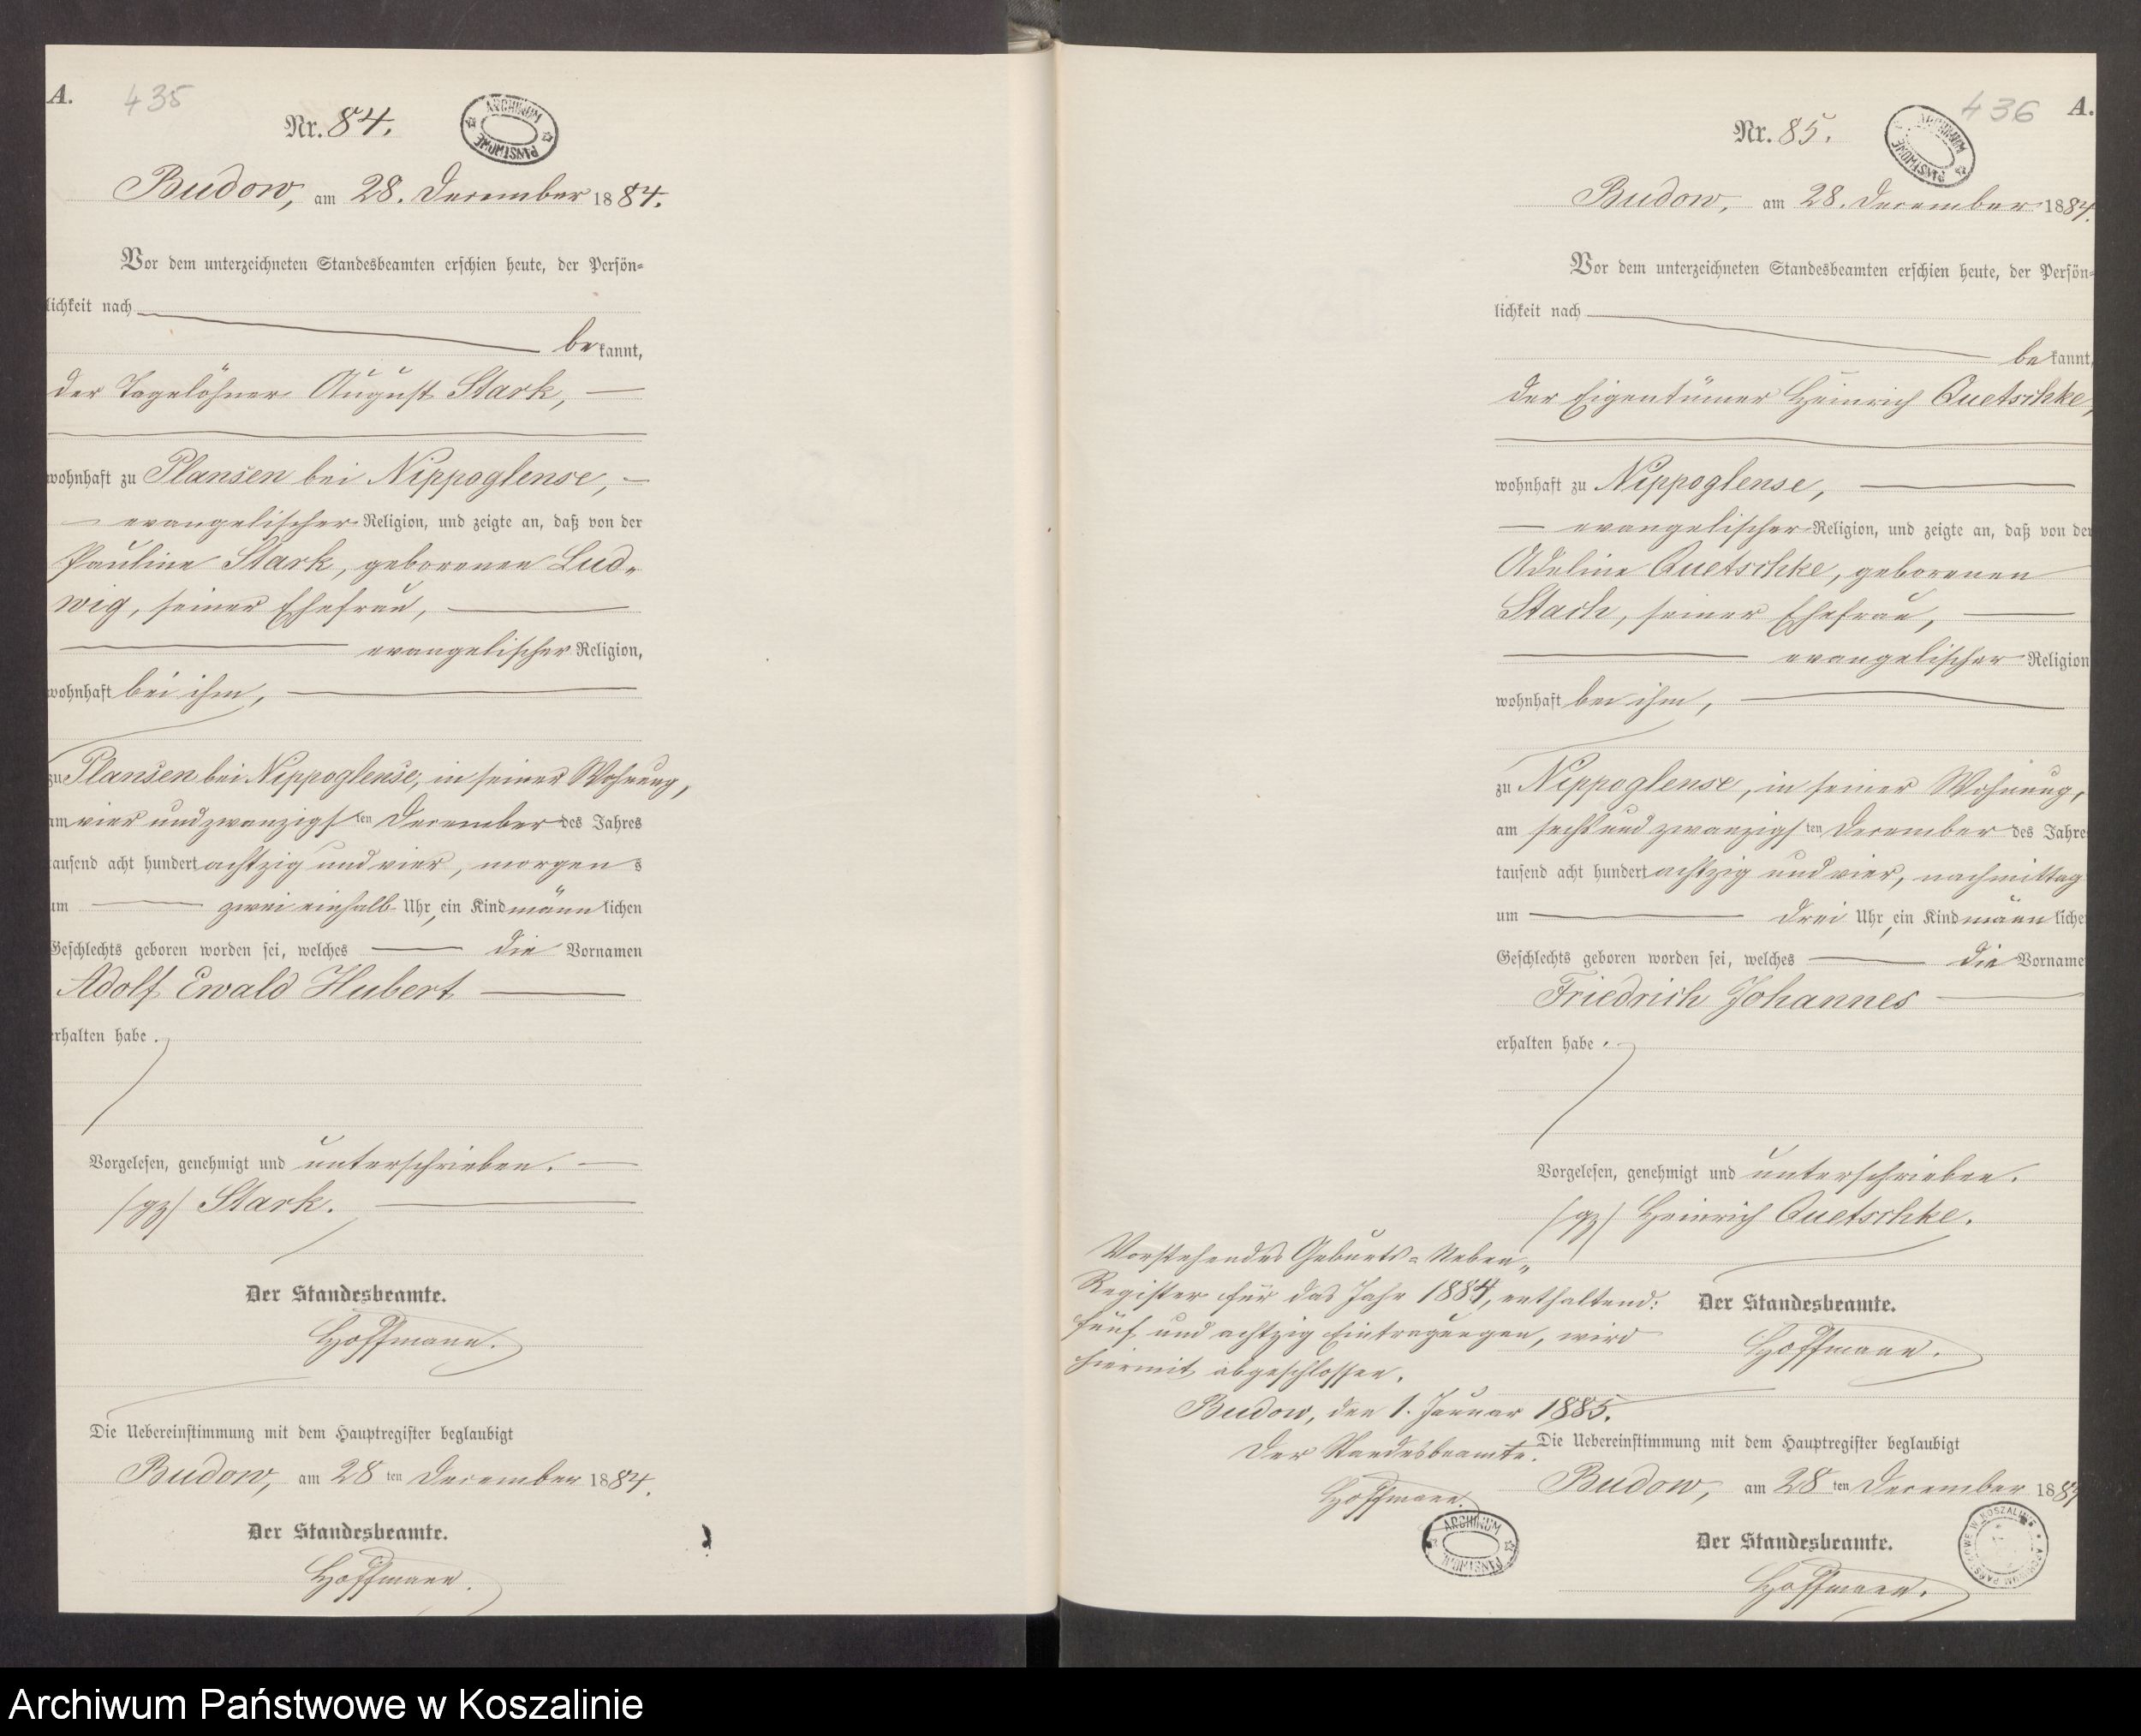 A.
435
Nr. 84.
ARCHIWUM PAŃSTWOWE
Budow, am 28. December 1884.
Vor dem unterzeichneten Standesbeamten erschien heute, der Persön=
lichkeit nach
be kannt,
der Tagelöhner August Stark,
wohnhaft zu Plansen bei Nippoglense,
evangelischer Religion, und zeigte an, daß von der
Pauline Stark, geborenen Lud-
wig, seiner Ehefrau,
evangelischer Religion,
wohnhaft bei ihm,
zu Plansen bei Nippoglense, in seiner Wohnung,
am vier und zwanzigsten December des Jahres
tausend acht hundert achtzig und vier, morgens
um zwei einhalb Uhr, ein Kind männlichen
Geschlechts geboren worden sei, welches die Vornamen
Adolf Ewald Hubert
erhalten habe.
Vorgelesen, genehmigt und unterschrieben.
/gz/ Stark.
Der Standesbeamte.
Hoffmann.
Die Uebereinstimmung mit dem Hauptregister beglaubigt
Budow, am 28 ten December 1884.
Der Standesbeamte.
Hoffmann.
436 A.
Nr. 85.
ARCHIWUM PAŃSTWOWE
Budow, am 28. December 1884.
Vor dem unterzeichneten Standesbeamten erschien heute, der Persön=
lichkeit nach
be kannt,
der Eigentümer Heinrich Quetschke,
wohnhaft zu Nippoglense,
evangelischer Religion, und zeigte an, daß von der
Adeline Quetschke, geborenen
Stach, seiner Ehefrau,
evangelischer Religion
wohnhaft bei ihm,
zu Nippoglense, in seiner Wohnung,
am sechs und zwanzigsten December des Jahre
tausend acht hundert achtzig und vier, nachmittag
um drei Uhr, ein Kind männliche
Geschlechts geboren worden sei, welches die Vorname
Friedrich Johannes
erhalten habe.
Vorgelesen, genehmigt und unterschrieben.
/gz/ Heinrich Quetschke.
Der Standesbeamte.
Hoffmann.
Vorstehendes Geburts=Neben-
Register für das Jahr 1884, enthaltend:
fünf und achtzig Eintragungen, wird
hiermit abgeschlossen.
Budow, den 1. Januar 1885.
Der Standesbeamte.
Hoffmann.
ARCHIWUM PAŃSTWOWE
Die Uebereinstimmung mit dem Hauptregister beglaubigt
Budow, am 28 ten December 1884
Der Standesbeamte.
Hoffmann.
ARCHIWUM PAŃSTWOWE W KOSZALINIE
Archiwum Państwowe w Koszalinie